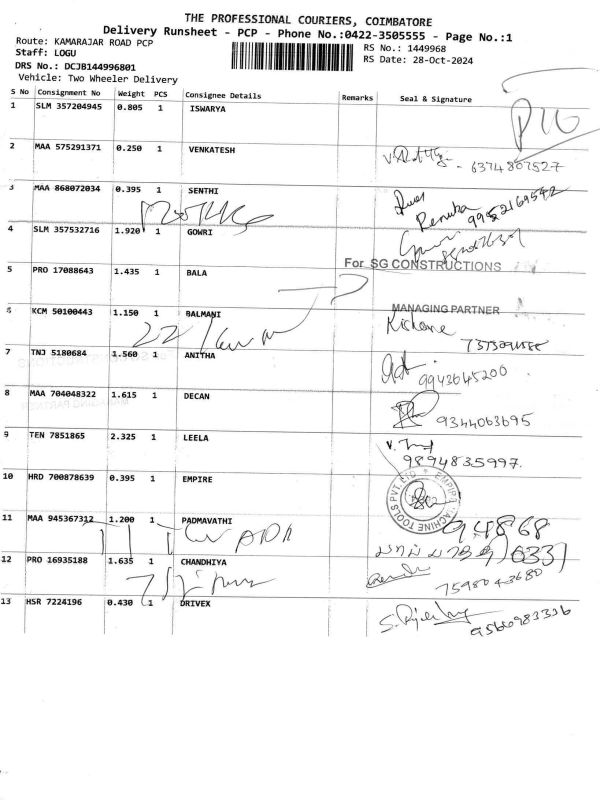 THE PROFESSIONAL COURIERS, COIMBATORE
Delivery Runsheet - PCP - Phone No.:0422-3505555 - Page No.:1
Route: KAMARAJAR ROAD PCP
RS No.: 1449968
Staff: LOGU
RS Date: 28-Oct-2024
DRS No.: DCJB144996801
Vehicle: Two Wheeler Delivery
S No Consignment No Weight PCS Consignee Details Remarks Seal & Signature
1 SLM 357204945 0.805 1 ISWARYA
2 MAA 575291371 0.250 1 VENKATESH
- 6374807527
3 MAA 868072034 0.395 1 SENTHI
Renuka 9952169592
4 SLM 357532716 1.920 1 GOWRI
For SG CONSTRUCTIONS
5 PRO 17088643 1.435 1 BALA
MANAGING PARTNER
6 KCM 50100443 1.150 1 BALMANI
22
7 TNJ 5180684 1.560 1 ANITHA
9943645200
8 MAA 704048322 1.615 1 DECAN
9344063695
9 TEN 7851865 2.325 1 LEELA
9894835997
10 HRD 700878639 0.395 1 EMPIRE
EMPIRE MACHINE TOOLS PVT. LTD
11 MAA 945367312 1.200 1 PADMAVATHI
94868
6331
12 PRO 16935188 1.635 1 CHANDHIYA
7598043680
13 HSR 7224196 0.430 1 DRIVEX
9566983336